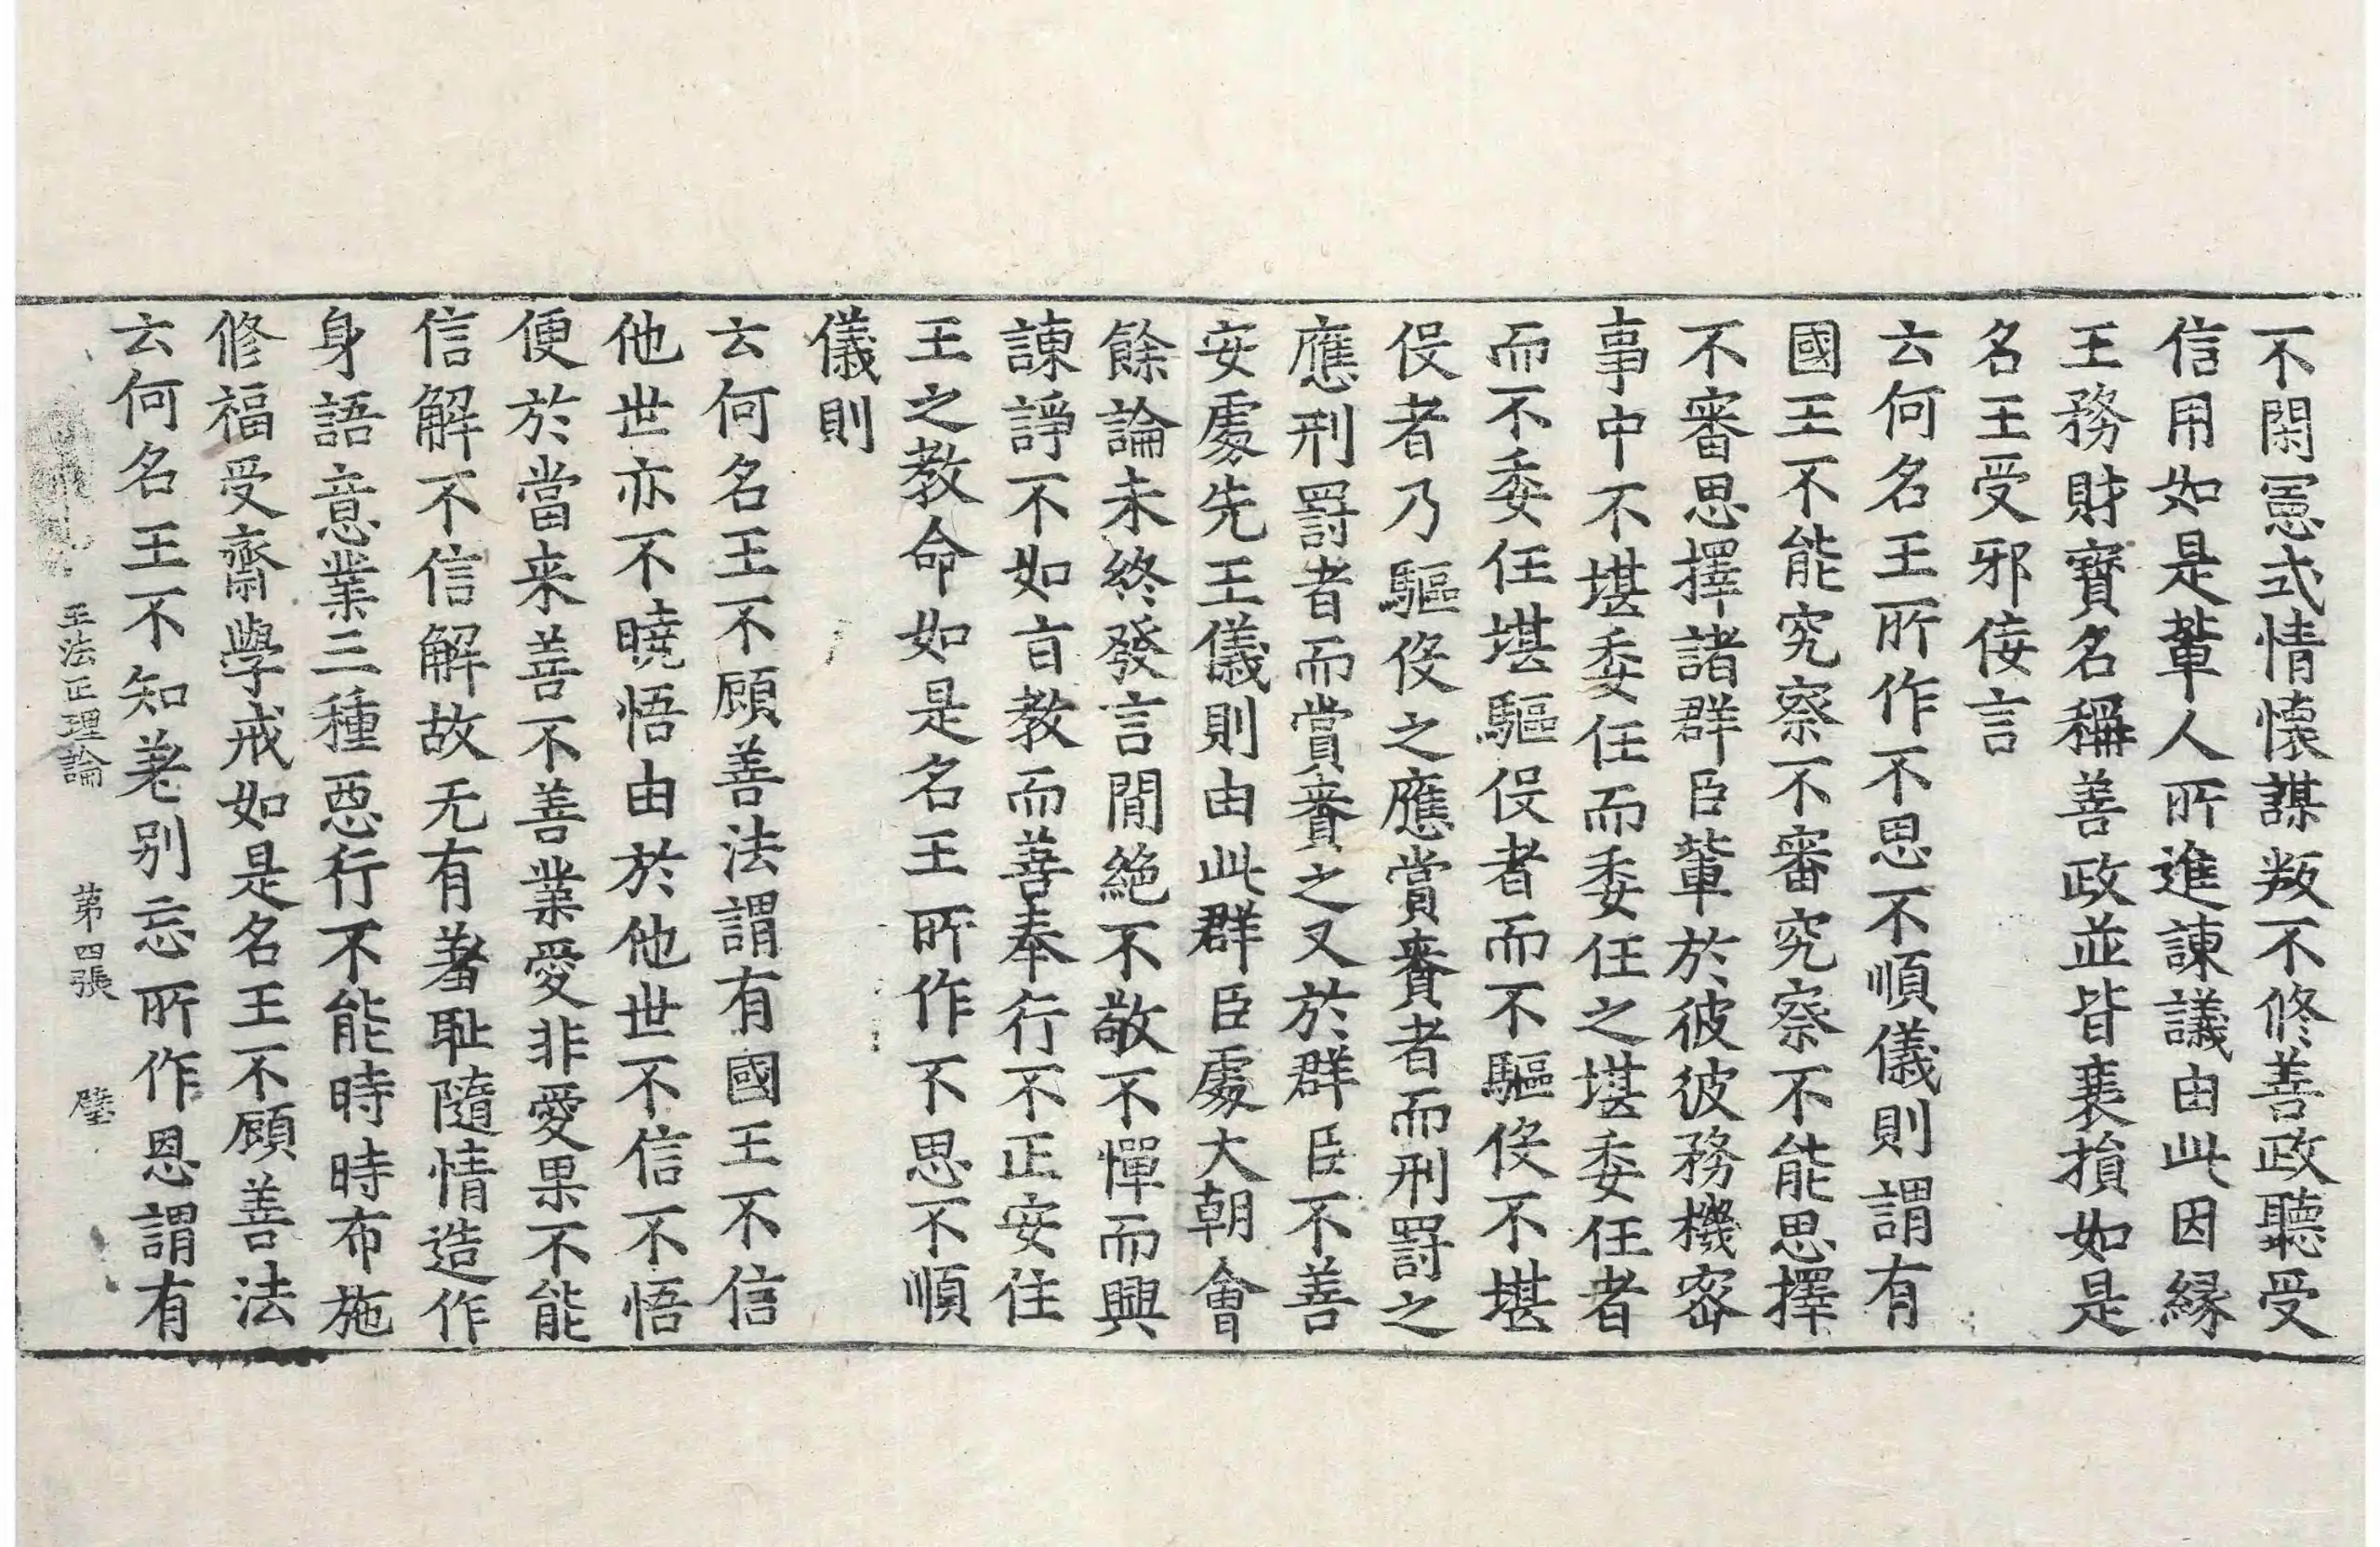 不閑憲式情懷謀叛不修善政聽受
信用如是輩人所進諫議由此因緣
王務財寶名稱善政並皆衰損如是
名王受邪佞言
云何名王所作不思不順儀則謂有
國王不能究察不審究察不能思擇
不審思擇諸群臣輩於彼彼務機密
事中不堪委任而委任之堪委任者
而不委任堪驅伇者而不驅伇不堪
伇者乃驅伇之應賞賚者而刑罰之
應刑罰者而賞賚之又於群臣不善
安處先王儀則由此群臣處大朝會
餘論未終發言間絕不敬不憚而興
諫諍不如旨教而善奉行不正安住
王之教命如是名王所作不思不順
儀則
云何名王不顧善法謂有國王不信
他世亦不曉悟由於他世不信不悟
便於當来善不善業愛非愛果不能
信解不信解故无有羞恥隨情造作
身語意業三種惡行不能時時布施
修福受齋學戒如是名王不顧善法
云何名王不知差別忘所作恩謂有
王法正理論　第四張　璧